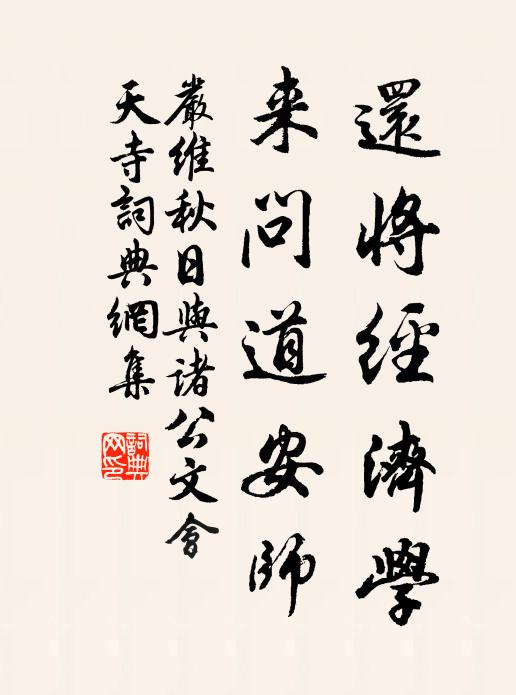 還將經濟學
来問道安師
嚴維秋日與諸公文會
天寺詞典網集
詞典網印